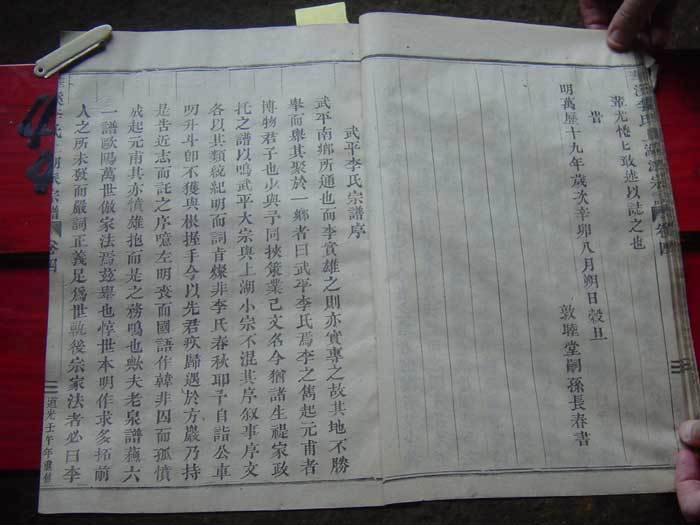 華尤惓七敢述以誌之也
昔
明萬歷十九年歲次辛卯八月朔日穀旦
敦睦堂嗣孫長春書
武平李氏宗譜序
武平南鄉所通也而李實雄之則亦實專之故其地不勝
舉而舉其聚於一鄉者曰武平李氏焉李之儁起元甫者
博物君子也少與予同挾策業己文名今猶諸生禔家政
托之譜以鳴武平大宗與上湖小宗不混其序叙事序文
各以其類統紀明而詞肯燦非李氏春秋耶予自詣公車
明升斗卽不獲與根握手今以先君疾歸遇於方巖乃持
是告近志而託之序噫左明喪而國語作韓非因而孤憤
成起元甫其亦憤雄抱而是之務鳴也歟夫老泉譜蘓六
一譜歐陽萬世倣家法焉兹舉也惇世本明作求多拓前
人之所未裒而嚴詞正義足爲世軌後宗家法者必曰李
卷四
道光壬午年重修